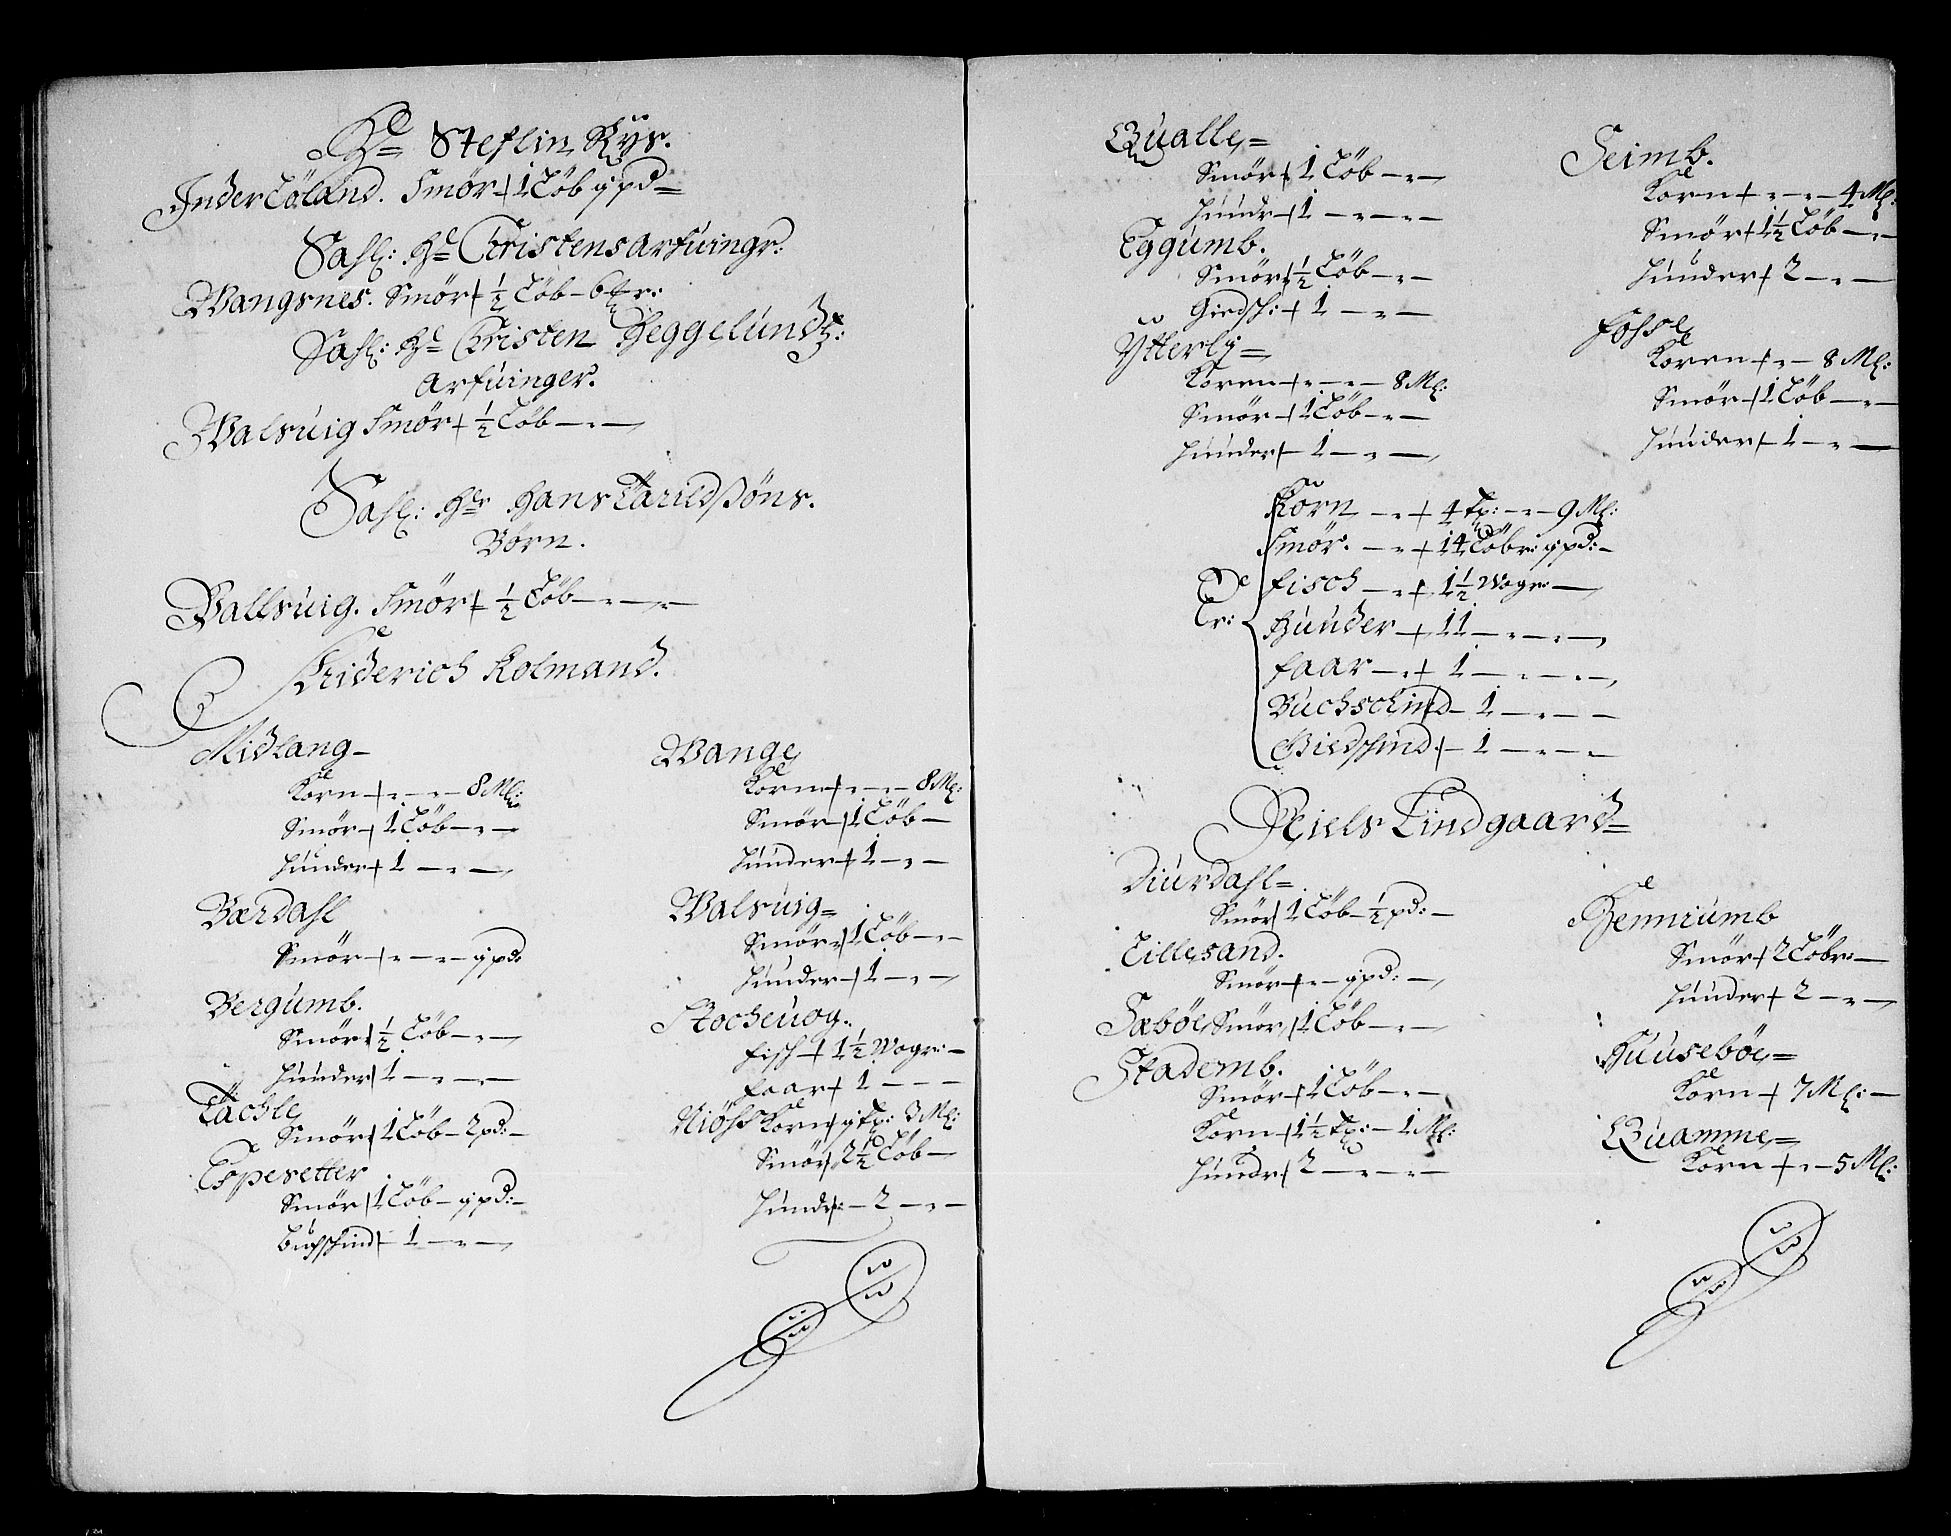 Hr Steffin Rÿs.
Inder Löland. Smör + 1 Löb 9 pd
Sahl: Hr Christens arfuingr:
Wangsnes. Smör + ½ Löb - 6
Sahl: Hr Christen Heggelundtz:
arfuinger.
Walsuig Smör + ½ Löb
Sahl: Hr Hans Tarildßöns.
Börn.
Wallsuig. Smör + ½ Löb
Friderich Kolmand.
Midlang
Korn + 8 Ml:
Smör + 1 Löb
Huuder + 1
Værdahl
Smör + 9 pd
Bergumb.
Smör ½ Löb
Huuder 1
Tächle
Smör 1 Löb - 2 pd:
Espesetter
Smör 1 Löb - 9 pd:
Buchschind 1
Wange
Korn + 8 Ml:
Smör 1 Löb
Huuder + 1
Walsuig
Smör 1 Löb
Huuder 1
Stocheuog.
Fisch + 1½ Wogr:
Faar + 1
Niöhs Korn 9 tp: 3 Ml:
Smör 2½ Löb
Huudr: 2
Qualle
Smör 1 Löb
Huudr 1
Eggumb.
Smör ½ Löb
Giedsch: + 1
Ÿtterlj
Koren + 8 Ml:
Smör 1 Löb
Huuder 1
Seimb.
Korn + 4 Ml:
Smör 1½ Löb
Huuder + 2
Fosse
Koren + 8 Ml:
Smör 1 Löb
Huuder 1
De
Er:
Korn + 4 tp: 9 Ml:
Smör. + 14 Löbr: 9 pd:
Fisch + 1½ Wogr:
Huuder + 11
Faar + 1
Buchschind 1
Giedschind: 1
Niels Lindgaard
Diurdahl
Smör 1 Löb ½ pd:
Lillesand.
Smör + 9 pd:
Sæböe Smör 1 Löb
Stademb.
Smör 1 Löb
Korn 1½ tp: 1 Ml:
Huudr 2
Henniumb
Smör 2 Löbr:
Huuder + 2
Huusebøe
Korn + 7 Ml:
Quamme
Korn + 5 Ml: